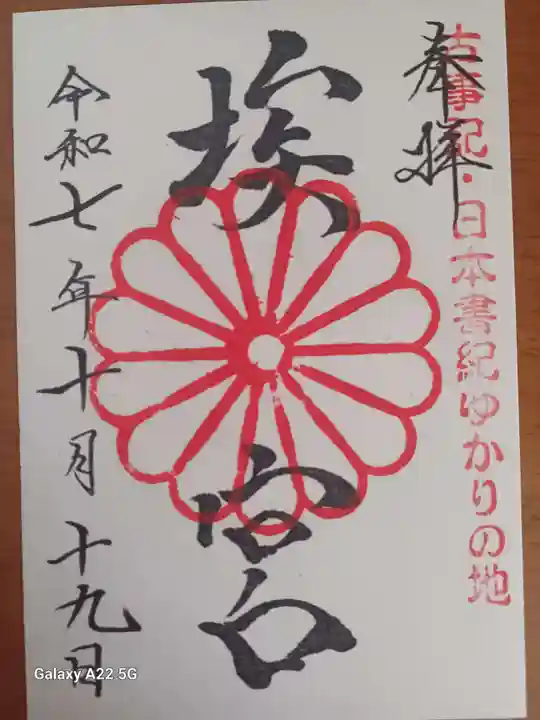 奉拝
古事記・日本書紀ゆかりの地
埃宮
令和七年十月十九日
Galaxy A22 5G